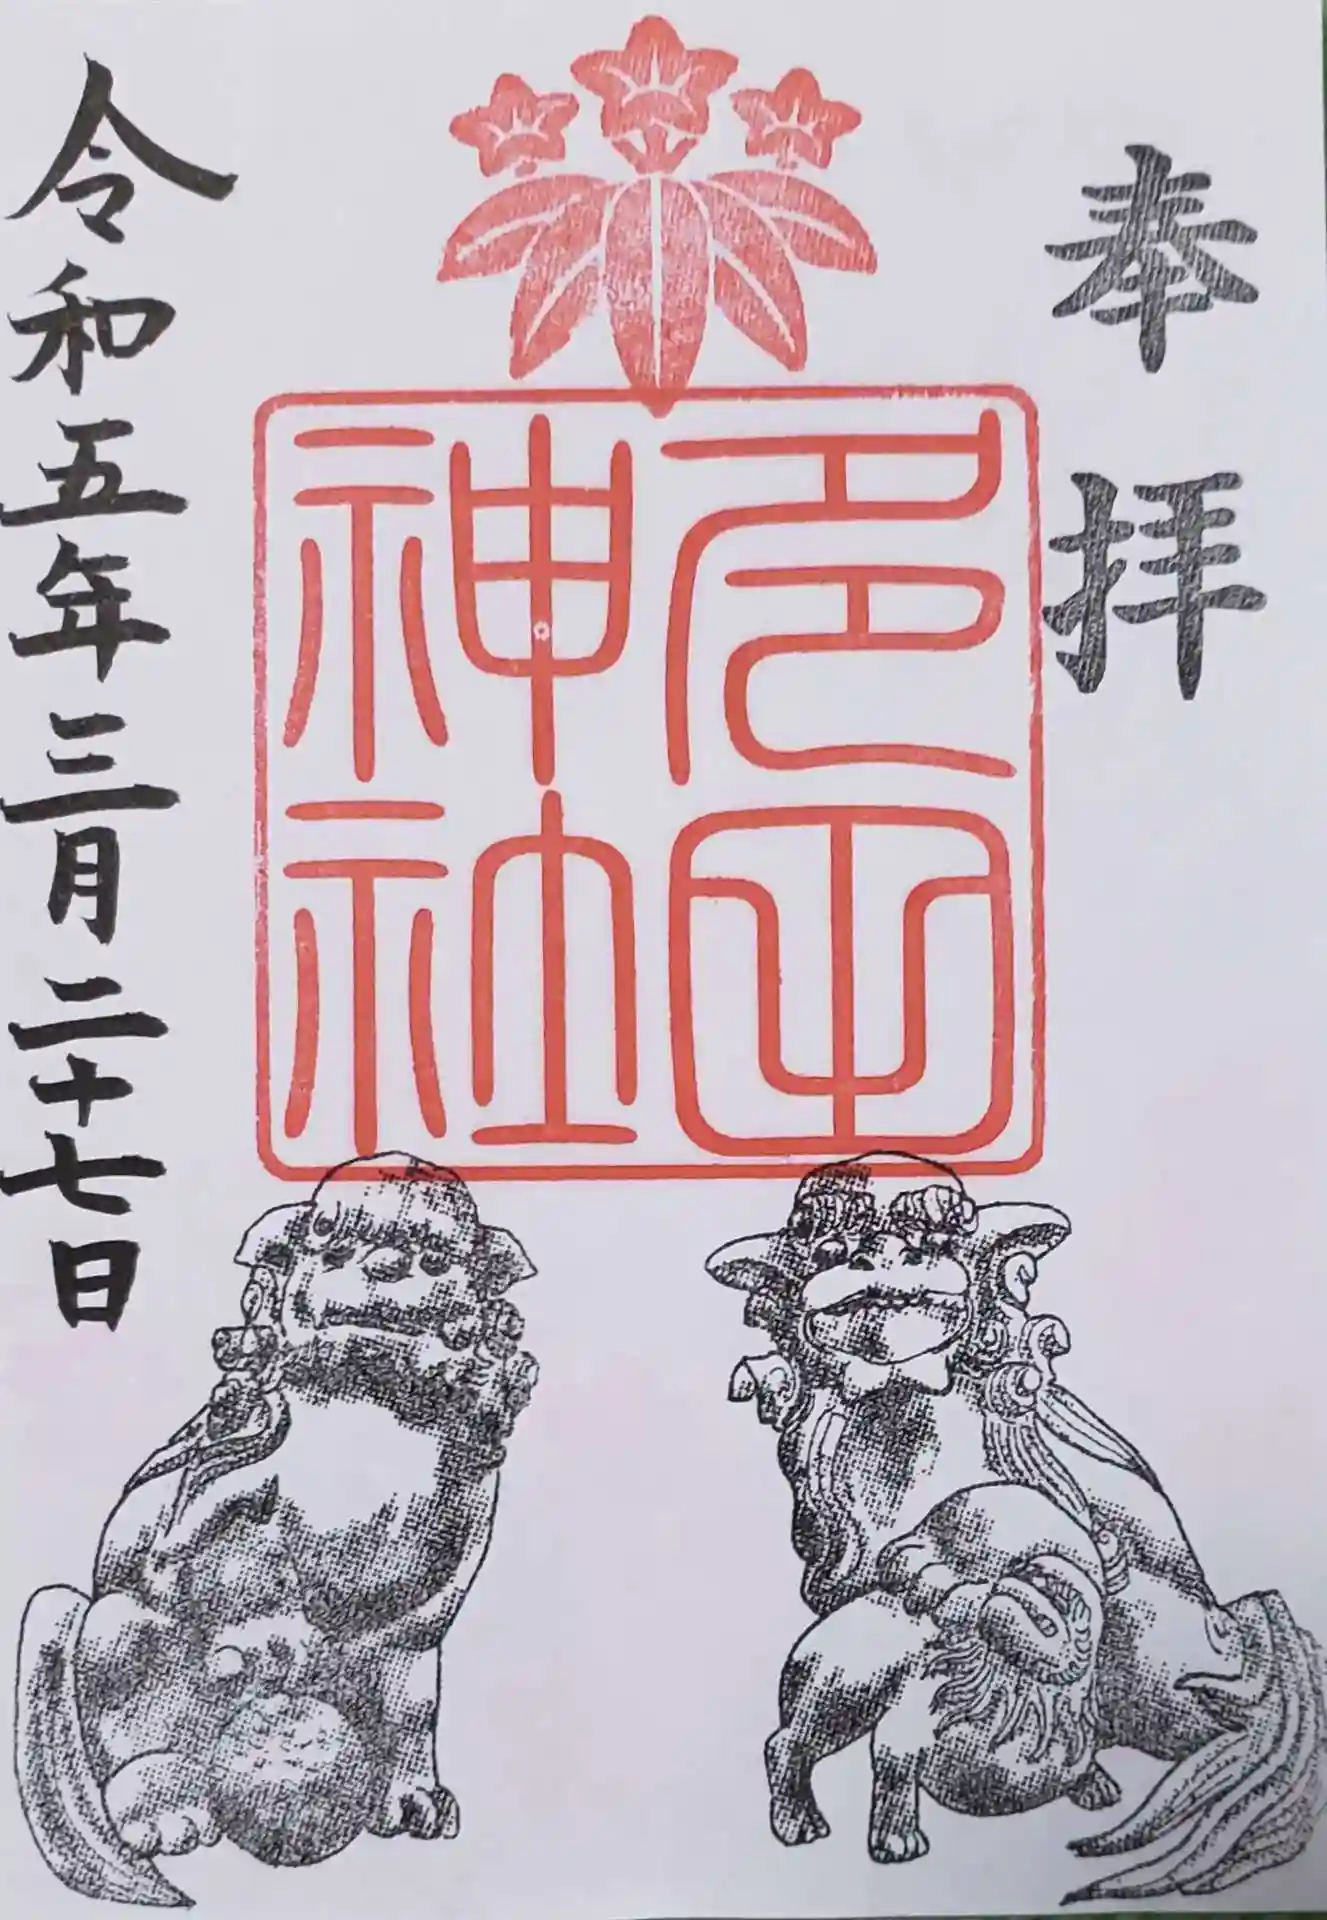 奉拝
多田
神社
令和五年三月二十七日